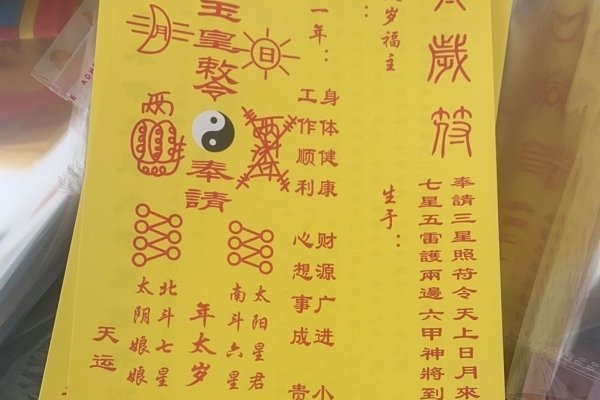 太歲符
奉請三星照符令天上日月來
七星五雷護兩邊六甲神將到
岁福主：
生于：
一年：
身体健康 财源广进 小
工作顺利 心想事成 贵
日
玉皇敕令
奉請
月
太阳星君
南斗六星
年太岁
北斗七星
太阴娘娘
天运